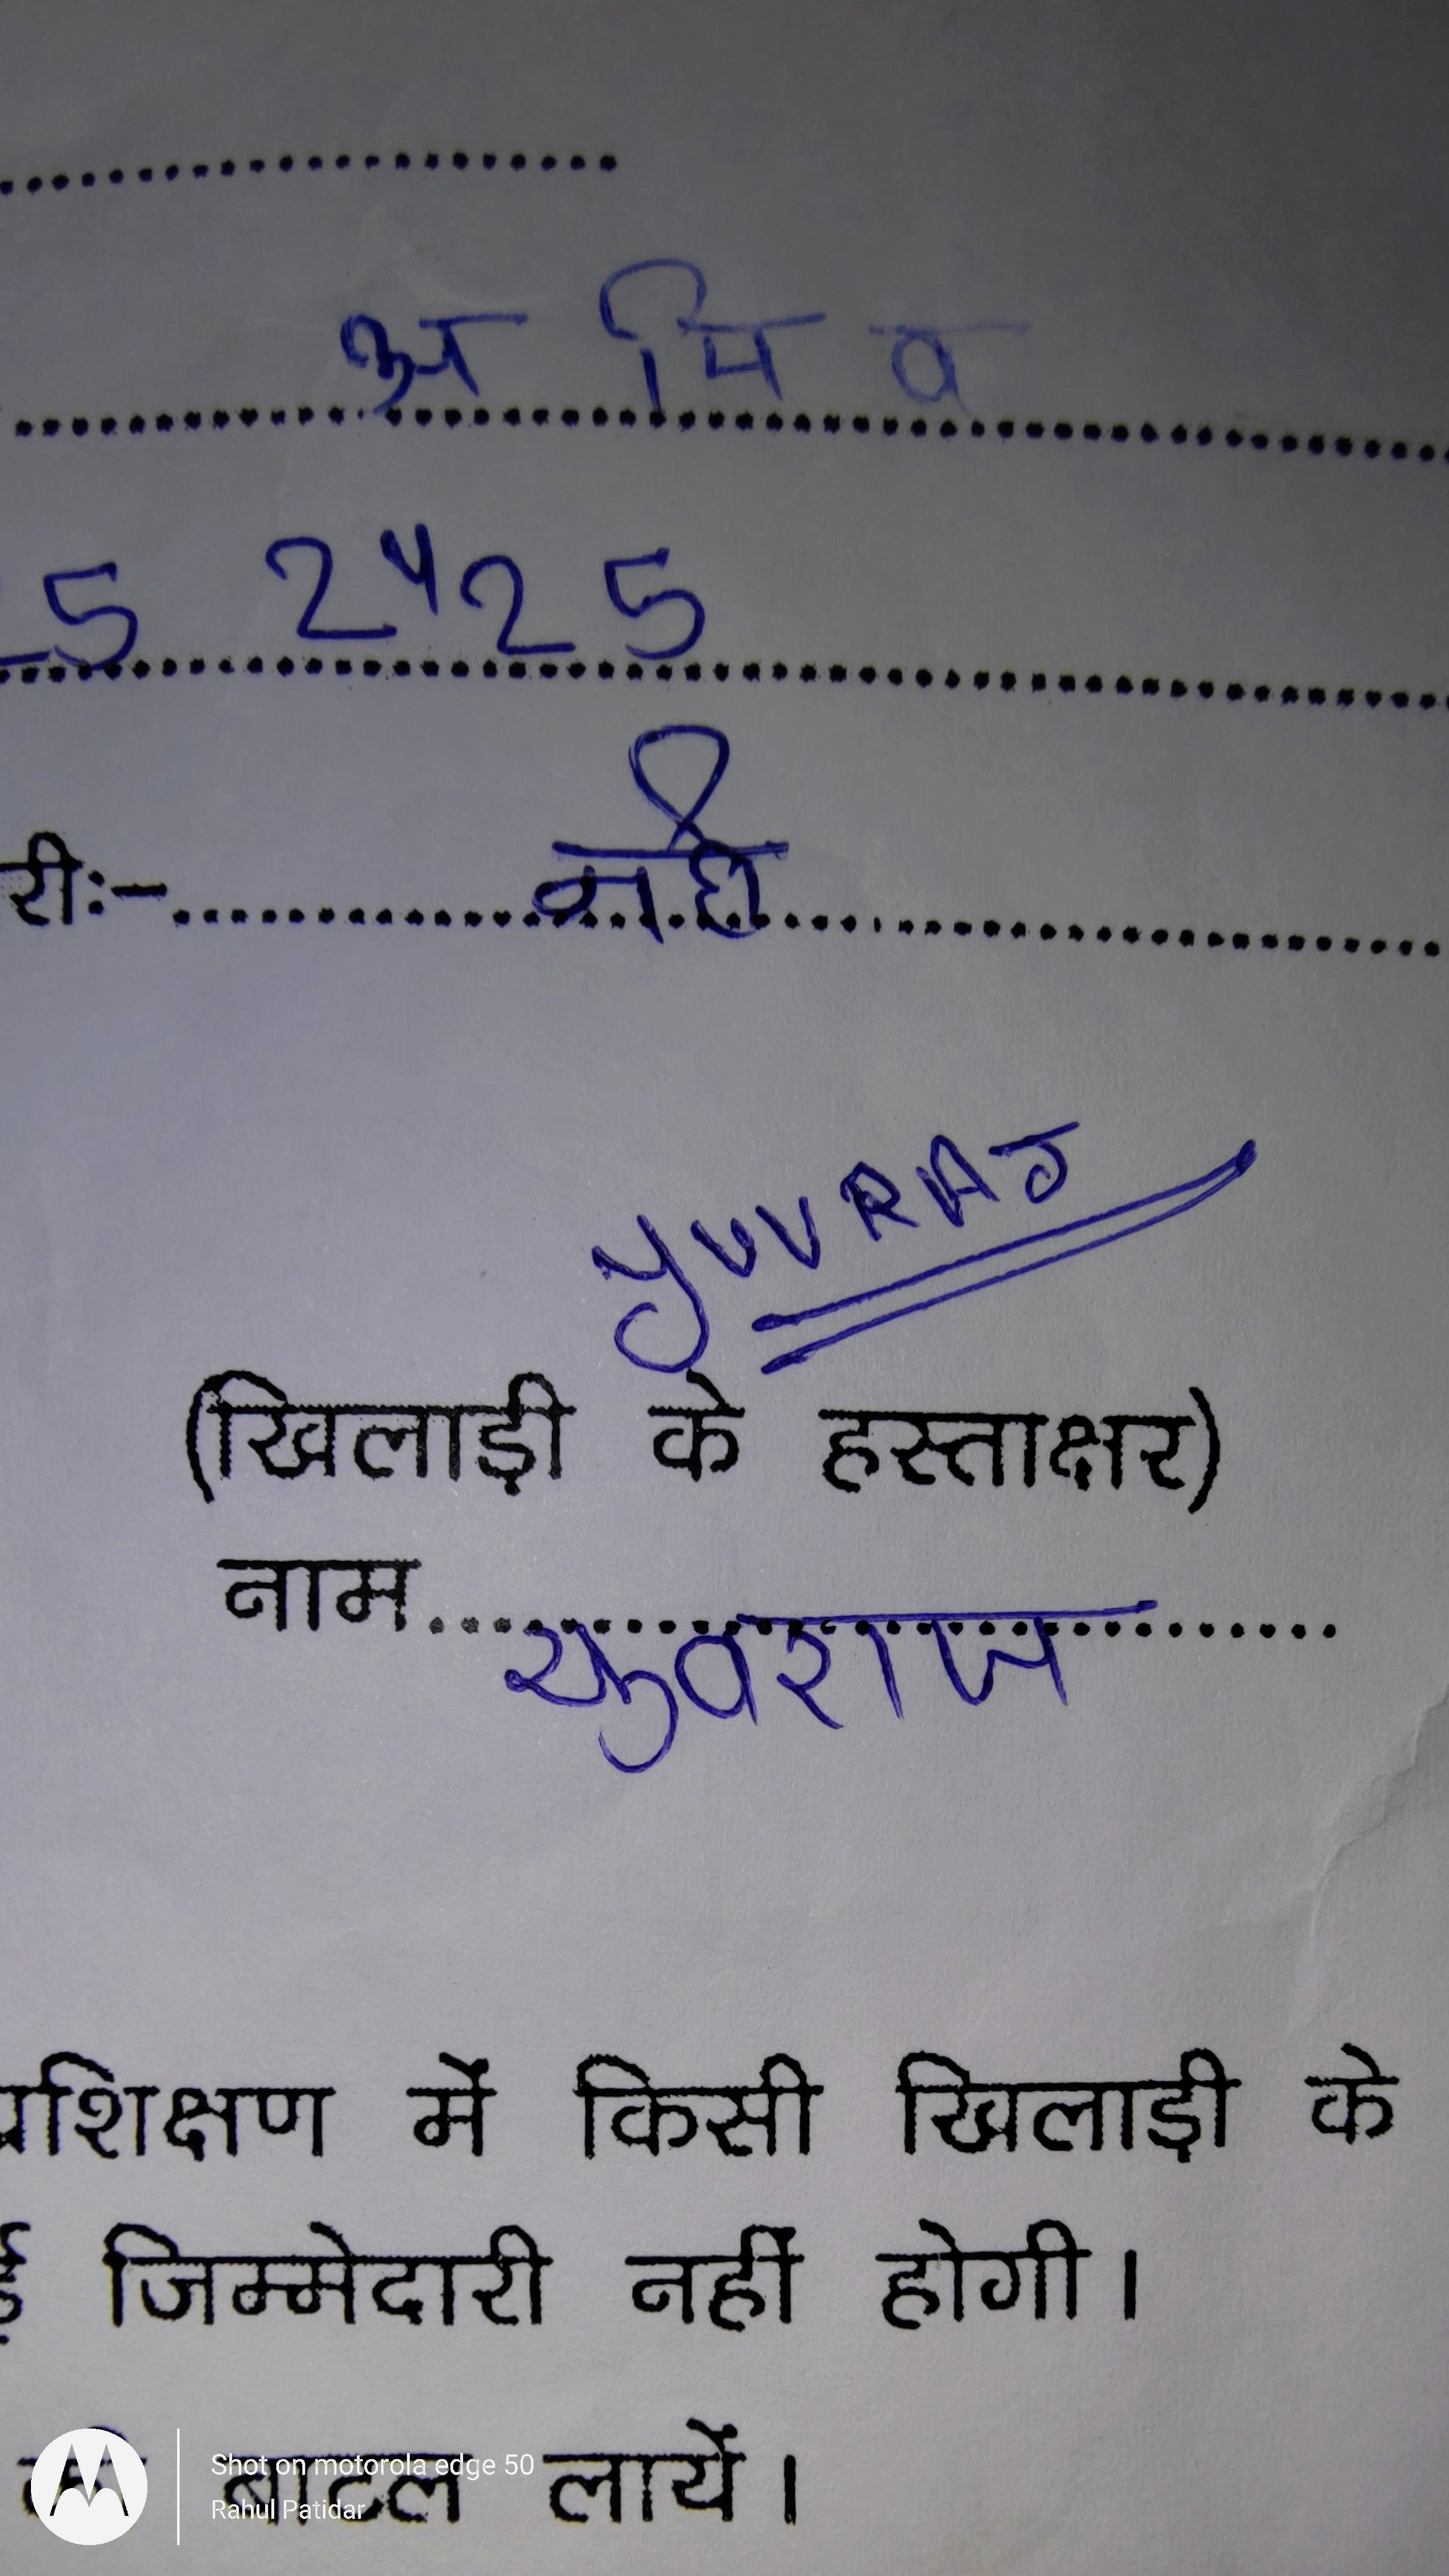 अ मि व
5 2425
री:- नही
YUVRAJ
(खिलाड़ी के हस्ताक्षर)
नाम युवराज
प्रशिक्षण में किसी खिलाड़ी के
जिम्मेदारी नहीं होगी।
की बाटल लायें।
Shot on motorola edge 50
Rahul Patidar